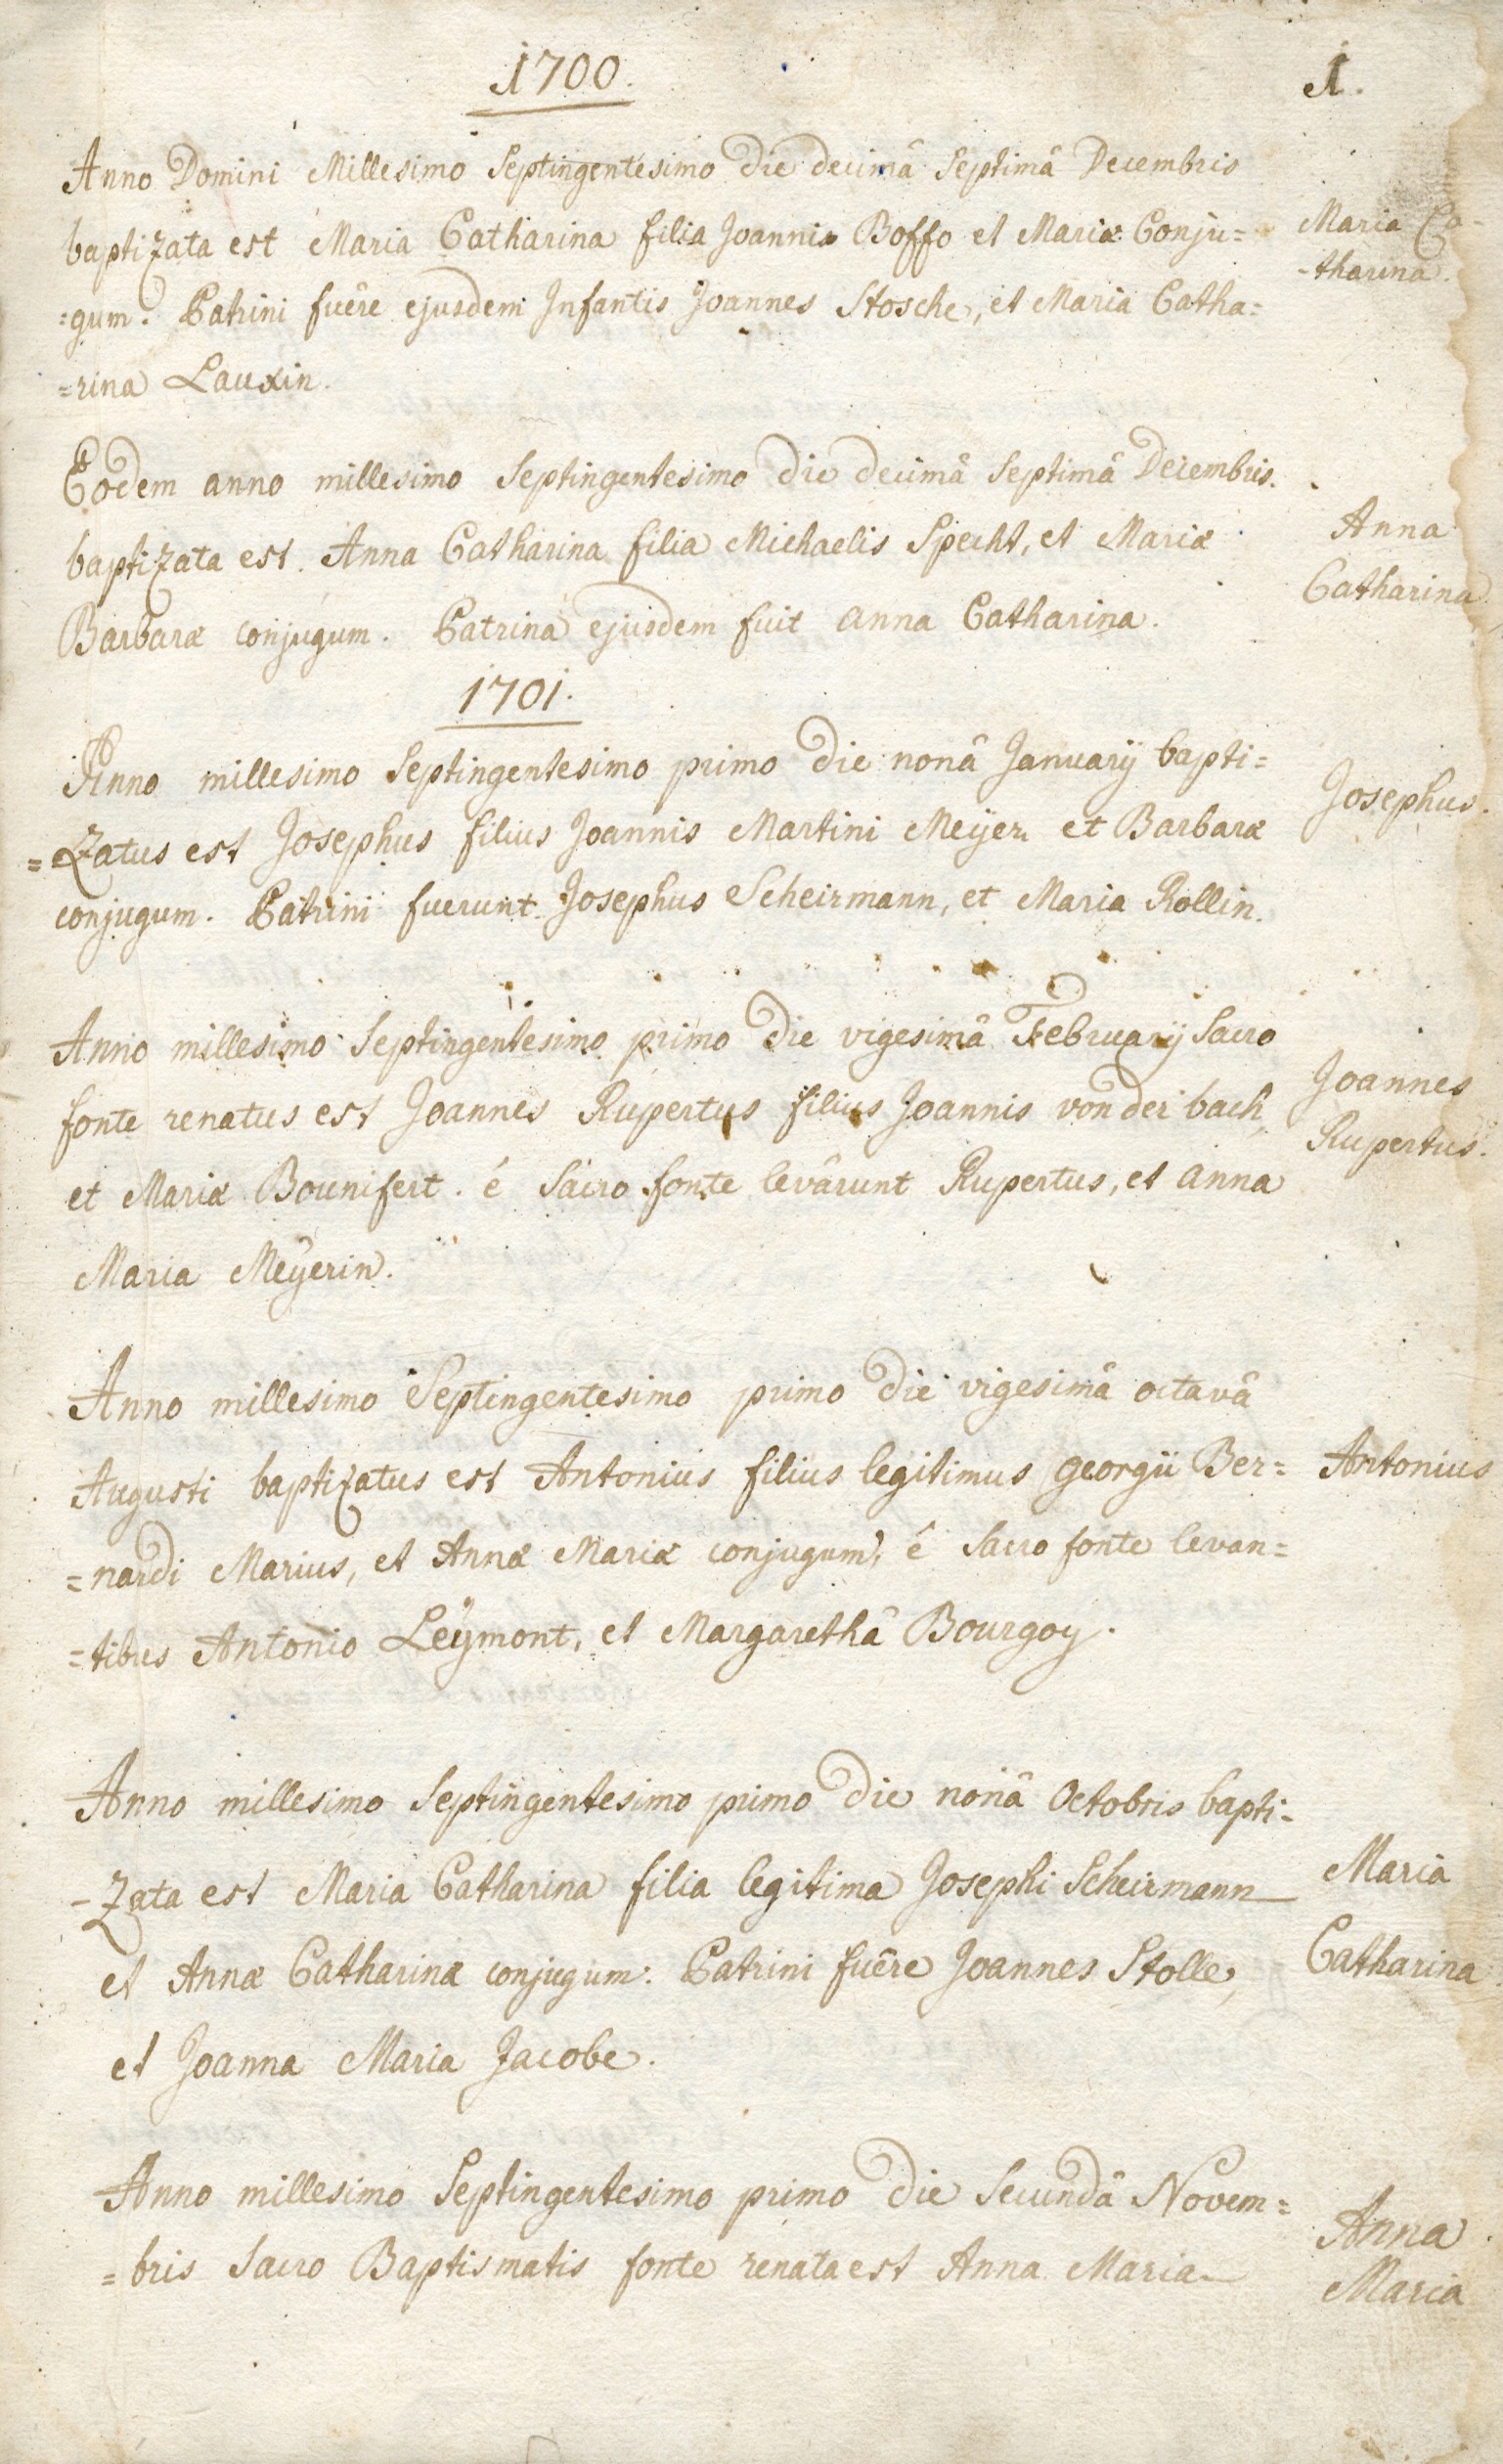 1700.
1.
Anno Domini Millesimo Septingentesimo die decimâ Septimâ Decembris
baptizata est Maria Catharina filia Joannis Boffo et Mariæ Conju=
=gum. Patrini fuêre ejusdem Infantis Joannes Stosche, et Maria Catha=
=rina Lauxin.
Maria Ca-
-tharina.
Eodem anno millesimo Septingentesimo die decimâ Septimâ Decembris.
baptizata est. Anna Catharina filia Michaelis Specht, et Mariæ
Barbaræ conjugum. Patrina ejusdem fuit anna Catharina.
Anna
Catharina
1701.
Anno millesimo Septingentesimo primo die nonâ Januarÿ bapti=
=Zatus est Josephus filius Joannis Martini Meÿer et Barbaræ
conjugum. Patrini fuerunt Josephus Scheirmann, et Maria Rollin.
Josephus.
Anno millesimo Septingentesimo primo die vigesimâ Februarÿ Sacro
fonte renatus est Joannes Rupertus filius Joannis von der bach,
et Mariæ Bounifert. é Sacro fonte levârunt Rupertus, et anna
Maria Meÿerin.
Joannes
Rupertus.
Anno millesimo Septingentesimo primo die vigesimâ octavâ
Augusti baptizatus est Antonius filius legitimus georgii Ber=
=nardi Marius, et Annæ Mariæ conjugum, ê Sacro fonte levan=
=tibus Antonio Leÿmont, et Margarethâ Bourgoy.
Antonius
Anno millesimo Septingentesimo primo die nonâ Octobris bapti-
-Zata est Maria Catharina filia legitima Josephi Scheirmann
et Annæ Catharinæ conjugum. Patrini fuêre Joannes Stolle,
et Joanna Maria Jacobe.
Maria
Catharina
Anno millesimo Septingentesimo primo die Secundâ Novem=
=bris Sacro Baptismatis fonte renata est Anna Maria
Anna
Maria